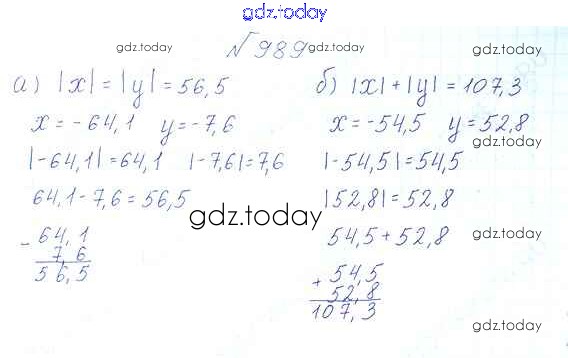 gdz.today
№989
gdz.today
gdz.today
а) |x|=|y|=56,5
x=-64,1 y=-7,6
|-64,1|=64,1 |-7,6|=7,6
64,1-7,6=56,5
-64,1
7,6
56,5
gdz.today
б) |x|+|y|=107,3
x=-54,5 y=52,8
gdz.today
|-54,5|=54,5
|52,8|=52,8
54,5+52,8
gdz.today
+54,5
52,8
107,3
gdz.today
gdz.today